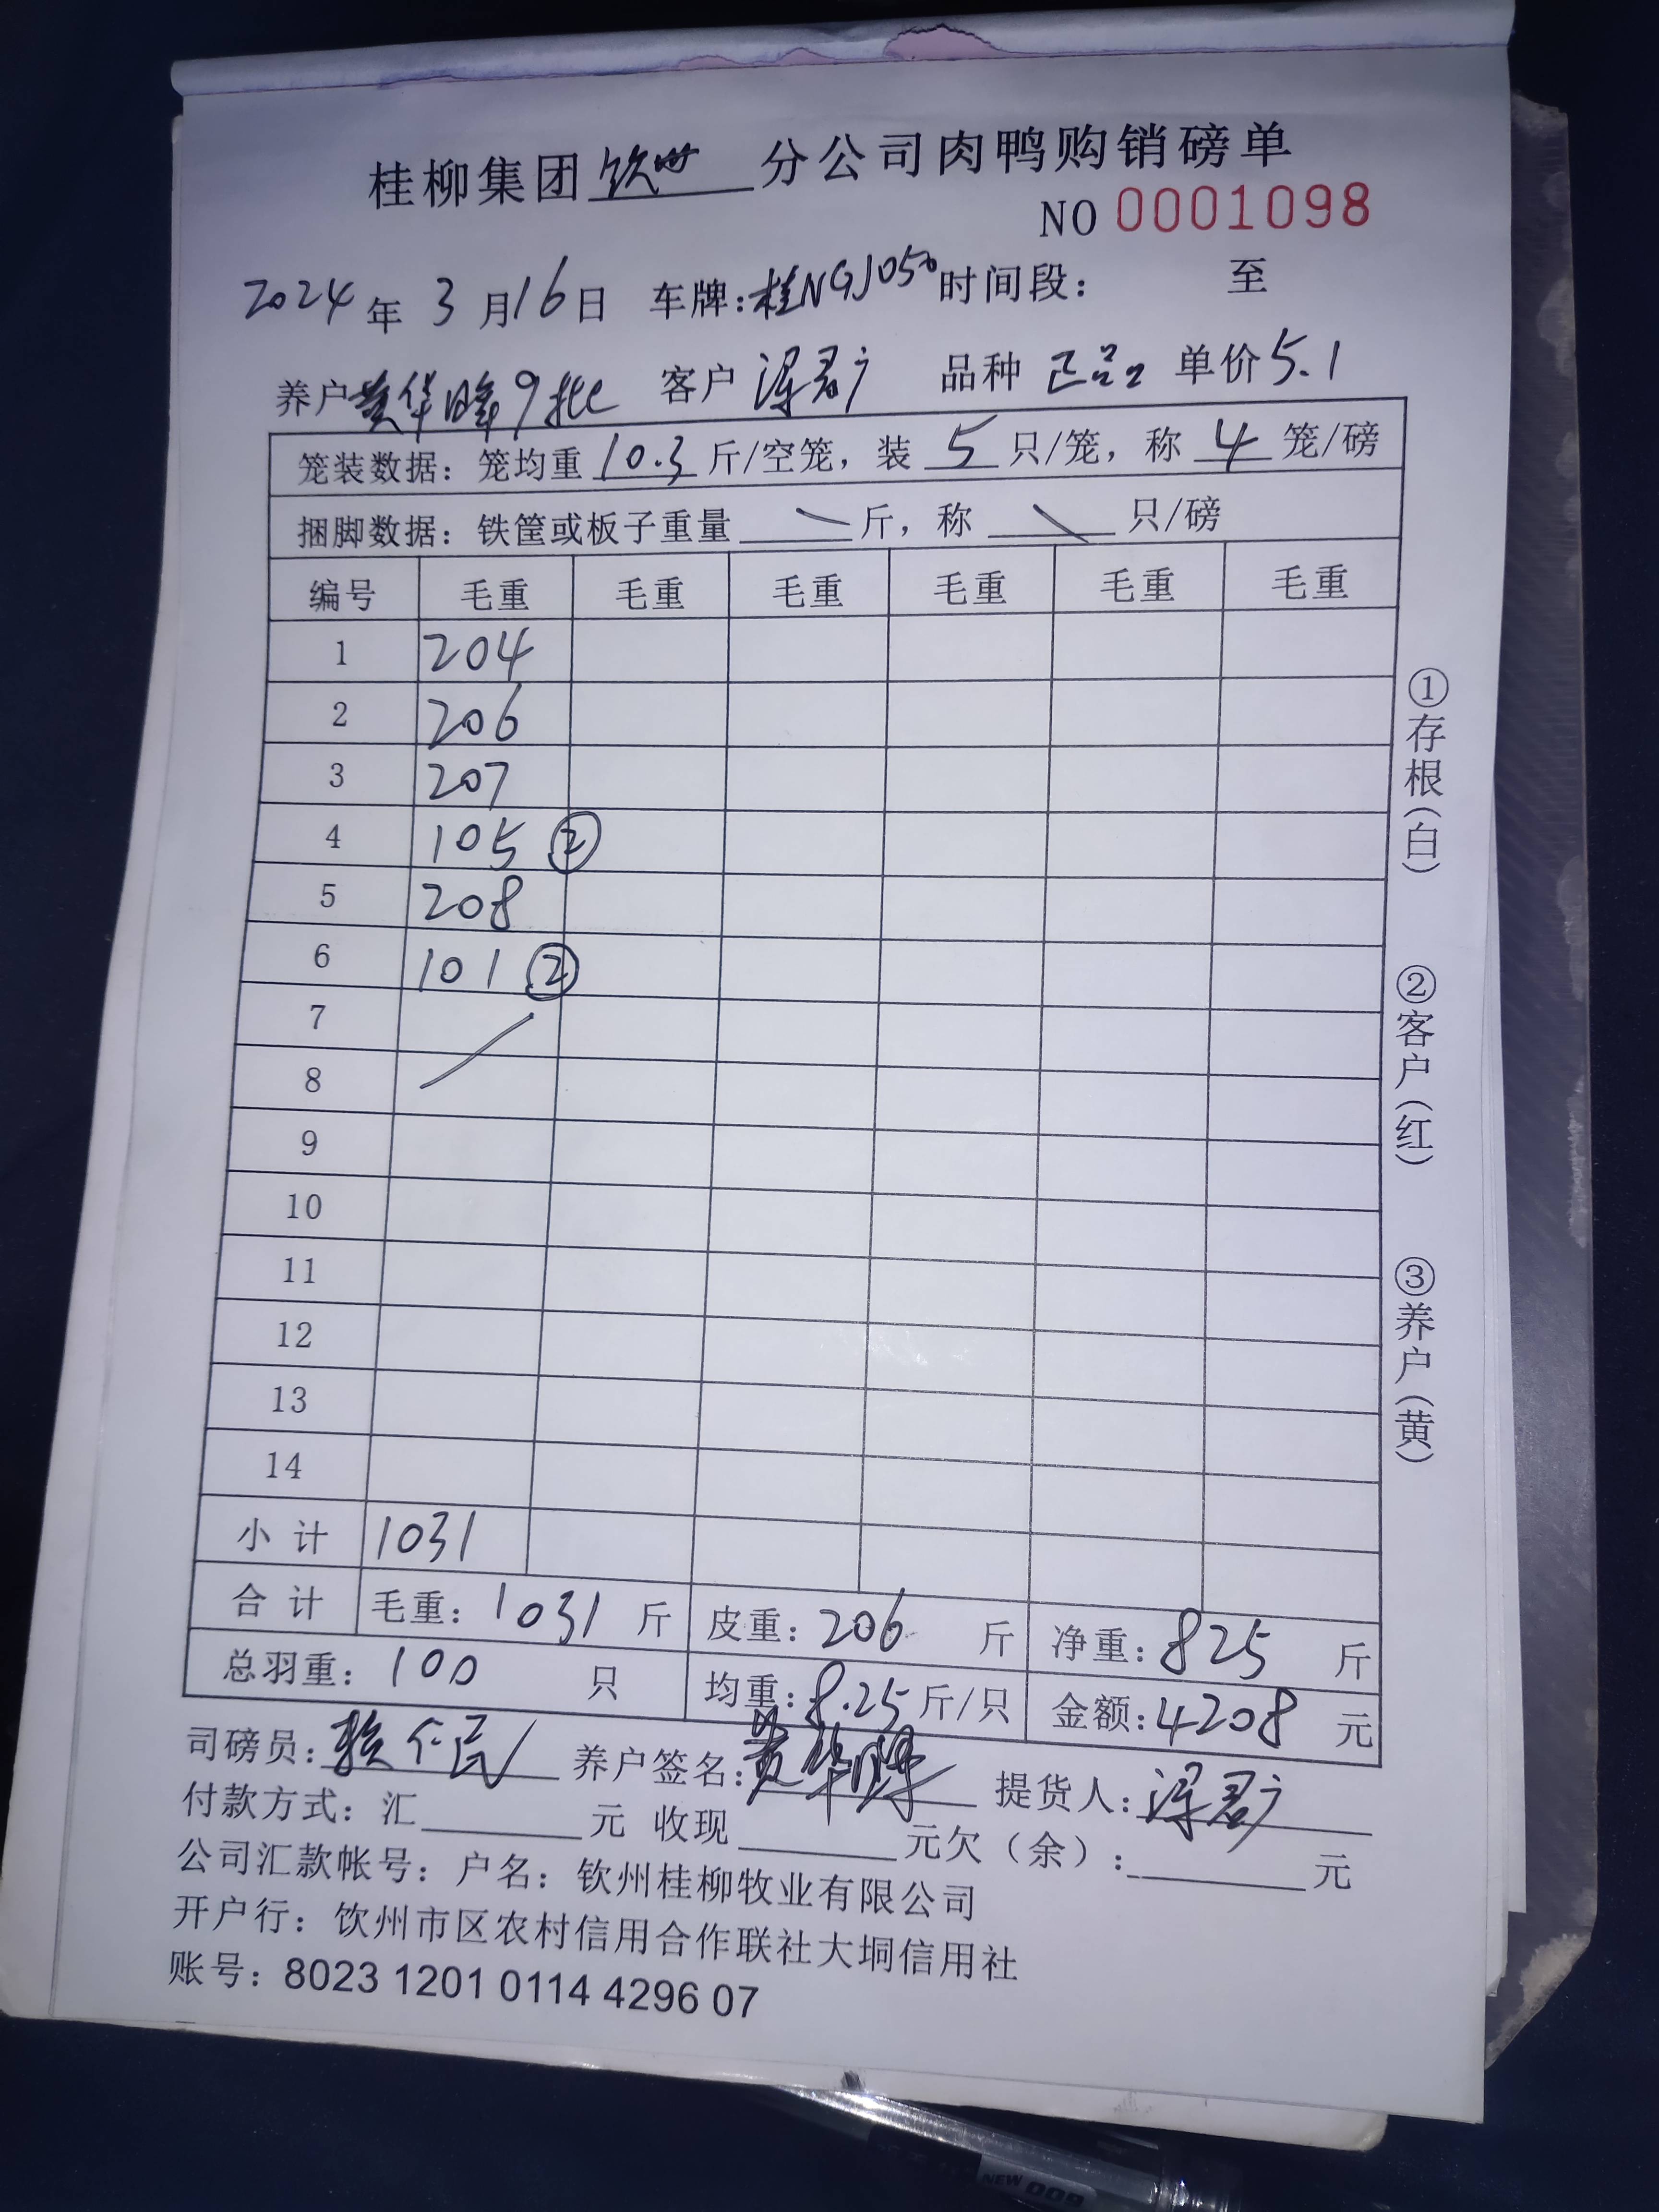 桂柳集团钦州分公司肉鸭购销磅单
NO 0001098
2024年3月16日 车牌:桂NGJ050 时间段: 至
养户黄华峰9批 客户 梁君广 品种 正品 单价5.1
笼装数据：笼均重10.3斤/空笼，装5只/笼，称4笼/磅
捆脚数据：铁筐或板子重量 斤，称 只/磅
编号 毛重 毛重 毛重 毛重 毛重 毛重
1 204
2 206
3 207
4 105 ②
5 208
6 101 ②
7
8
9
10
11
12
13
14
小计 1031
合计 毛重：1031斤 皮重：206斤 净重：825斤
总羽重：100只 均重：8.25斤/只 金额：4208元
司磅员：赖仁民 养户签名：黄华峰 提货人：梁君广
付款方式：汇 元 收现 元欠（余）： 元
公司汇款帐号：户名：钦州桂柳牧业有限公司
开户行：饮州市区农村信用合作联社大垌信用社
账号：8023 1201 0114 4296 07
①存根（白）
②客户（红）
③养户（黄）
NEW 009